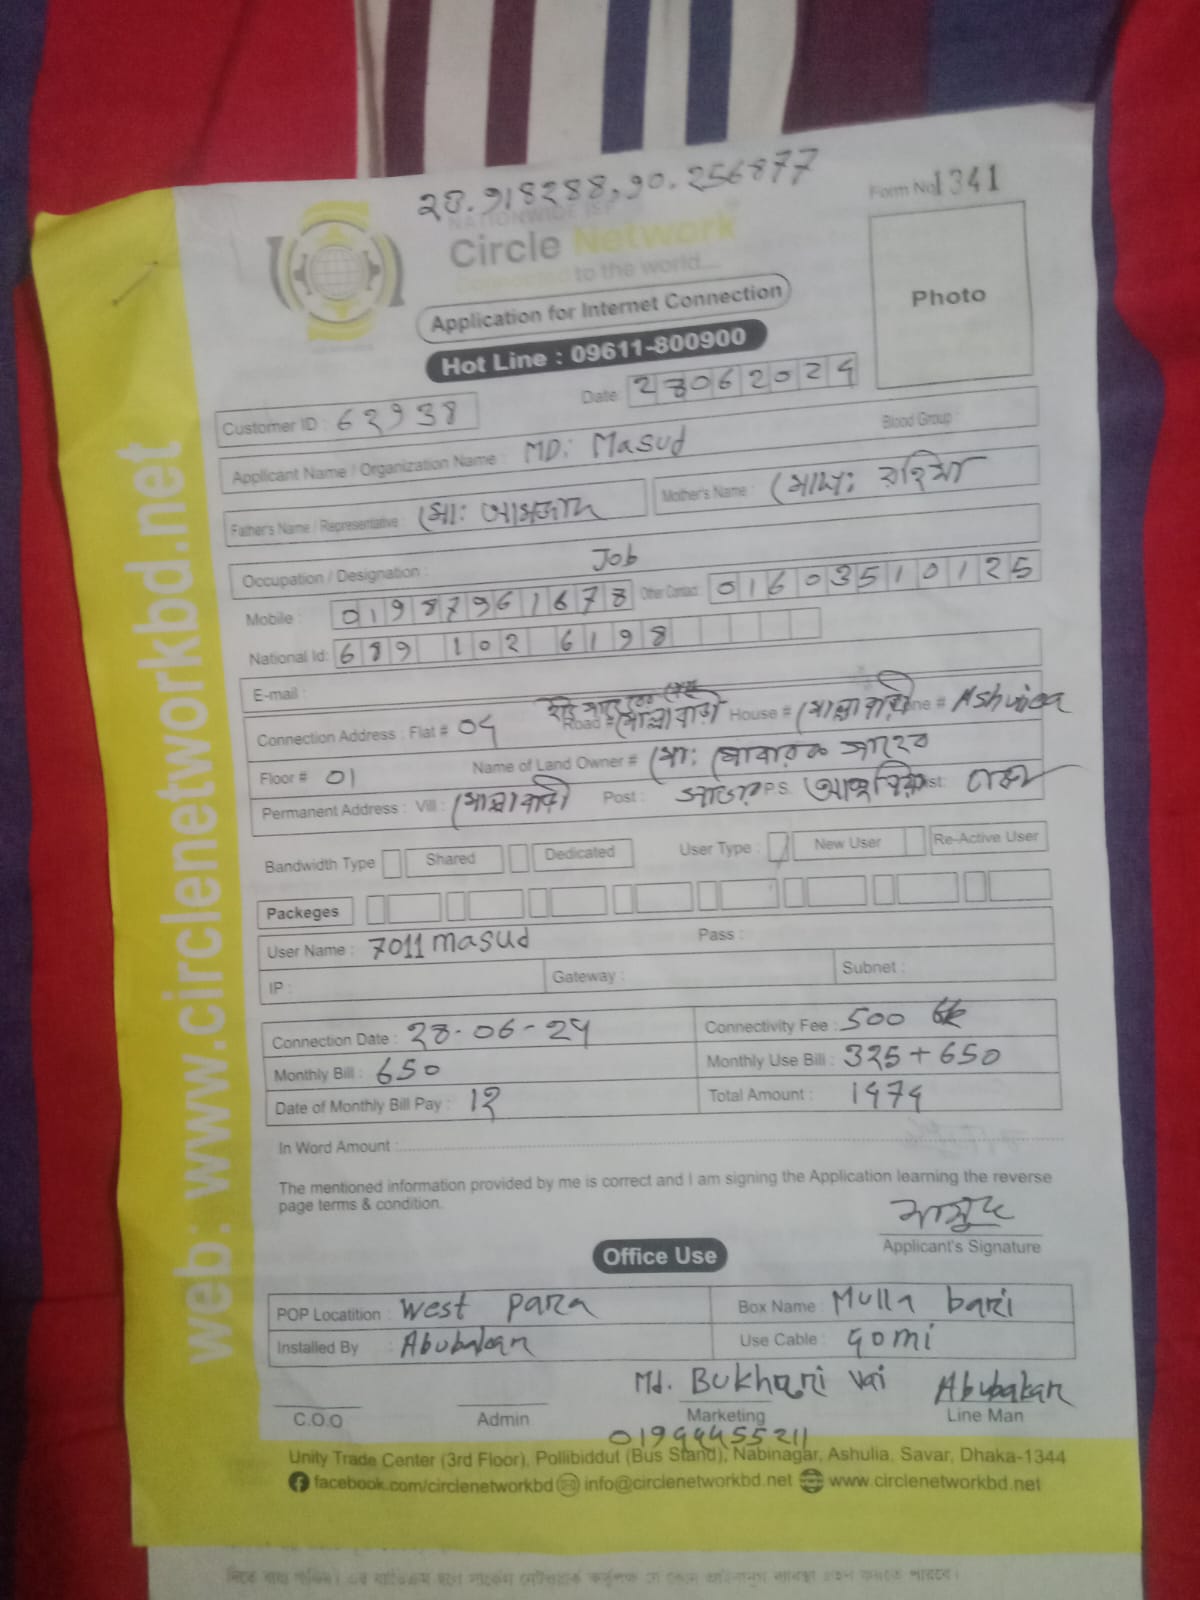 28.918288,90.256877
Form No 1341
NATIONWIDE ISP
Circle Network
Connected to the world...
Application for Internet Connection
Photo
Hot Line : 09611-800900
Date: 28062024
Customer ID : 62938
Applicant Name / Organization Name : MD: Masud Blood Group :
Father's Name / Representative : মো: আমজাদ Mother's Name : মোছা: রহিমা
Occupation / Designation : Job
Mobile : 01987961678 Other Contact : 01603510125
National Id: 689 102 6198
E-mail :
Connection Address : Flat # 04 Road # মোল্লাবাড়ী House # মোল্লাবাড়ী Zone # Ashulia
Floor # 01 Name of Land Owner # মো: মোবারক সাহেব
Permanent Address : Vill : মোল্লাবাড়ী Post : সাভার P.S. আশুলিয়া Dist: ঢাকা
Bandwidth Type Shared Dedicated User Type : New User Re-Active User
Packeges
User Name : 7011masud Pass :
IP : Gateway : Subnet :
Connection Date : 28-06-24 Connectivity Fee : 500 tk
Monthly Bill : 650 Monthly Use Bill : 325 + 650
Date of Monthly Bill Pay : 12 Total Amount : 1474
In Word Amount :
The mentioned information provided by me is correct and I am signing the Application learning the reverse
page terms & condition.
মাসুদ
Applicant's Signature
Office Use
POP Locatition : West para Box Name : Mulla bari
Installed By : Abubakar Use Cable : 90mi
Md. Bukhari Vai Abubakar
C.O.O Admin Marketing Line Man
01944455211
Unity Trade Center (3rd Floor), Pollibiddut (Bus Stand), Nabinagar, Ashulia, Savar, Dhaka-1344
facebook.com/circlenetworkbd info@circlenetworkbd.net www.circlenetworkbd.net
web: www.circlenetworkbd.net